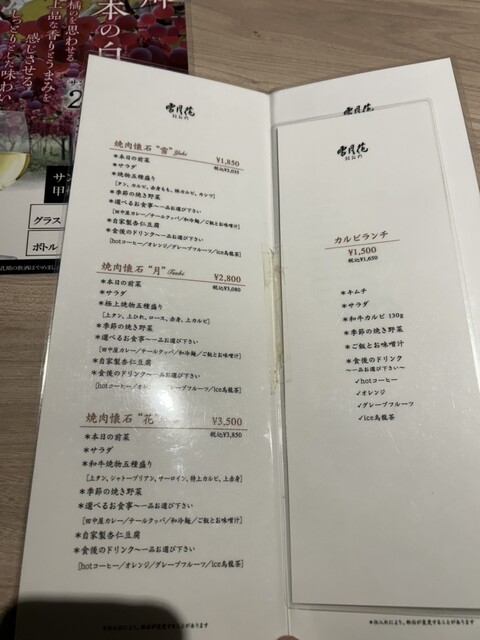 橘のを思わせる
上品な香りとうまみを
感じさせる
しっとりとした味わい
グラス
ボトル
雪月花
焼肉懐石"雪" Yuki ¥1,850
税込¥2,035
＊本日の前菜
＊サラダ
＊焼物五種盛り
[タン、カルビ、赤身もも、豚カルビ、カシワ]
＊季節の焼き野菜
＊選べるお食事〜一品お選び下さい
[田中屋カレー/テールクッパ/和冷麺/ご飯とお味噌汁]
＊自家製杏仁豆腐
＊食後のドリンク〜一品お選び下さい
[hotコーヒー/オレンジ/グレープフルーツ/ice烏龍茶]
焼肉懐石"月" Tsuki ¥2,800
税込¥3,080
＊本日の前菜
＊サラダ
＊極上焼物五種盛り
[上タン、上ひれ、ロース、赤身、上カルビ]
＊季節の焼き野菜
＊選べるお食事〜一品お選び下さい
[田中屋カレー/テールクッパ/和冷麺/ご飯とお味噌汁]
＊自家製杏仁豆腐
＊食後のドリンク〜一品お選び下さい
[hotコーヒー/オレンジ/グレープフルーツ/ice烏龍茶]
焼肉懐石"花" ¥3,500
税込¥3,850
＊本日の前菜
＊サラダ
＊和牛焼物五種盛り
[上タン、シャトーブリアン、サーロイン、特上カルビ、上赤身]
＊季節の焼き野菜
＊選べるお食事〜一品お選び下さい
[田中屋カレー/テールクッパ/和冷麺/ご飯とお味噌汁]
＊自家製杏仁豆腐
＊食後のドリンク〜一品お選び下さい
[hotコーヒー/オレンジ/グレープフルーツ/ice烏龍茶]
＊仕入れにより、部位が変更することがあります
雪月花
雪月花
カルビランチ
¥1,500
税込¥1,650
＊キムチ
＊サラダ
＊和牛カルビ 130g
＊季節の焼き野菜
＊ご飯とお味噌汁
＊食後のドリンク
〜一品お選び下さい〜
✓hotコーヒー
✓オレンジ
✓グレープフルーツ
✓ice烏龍茶
＊仕入れにより、部位が変更することがあります